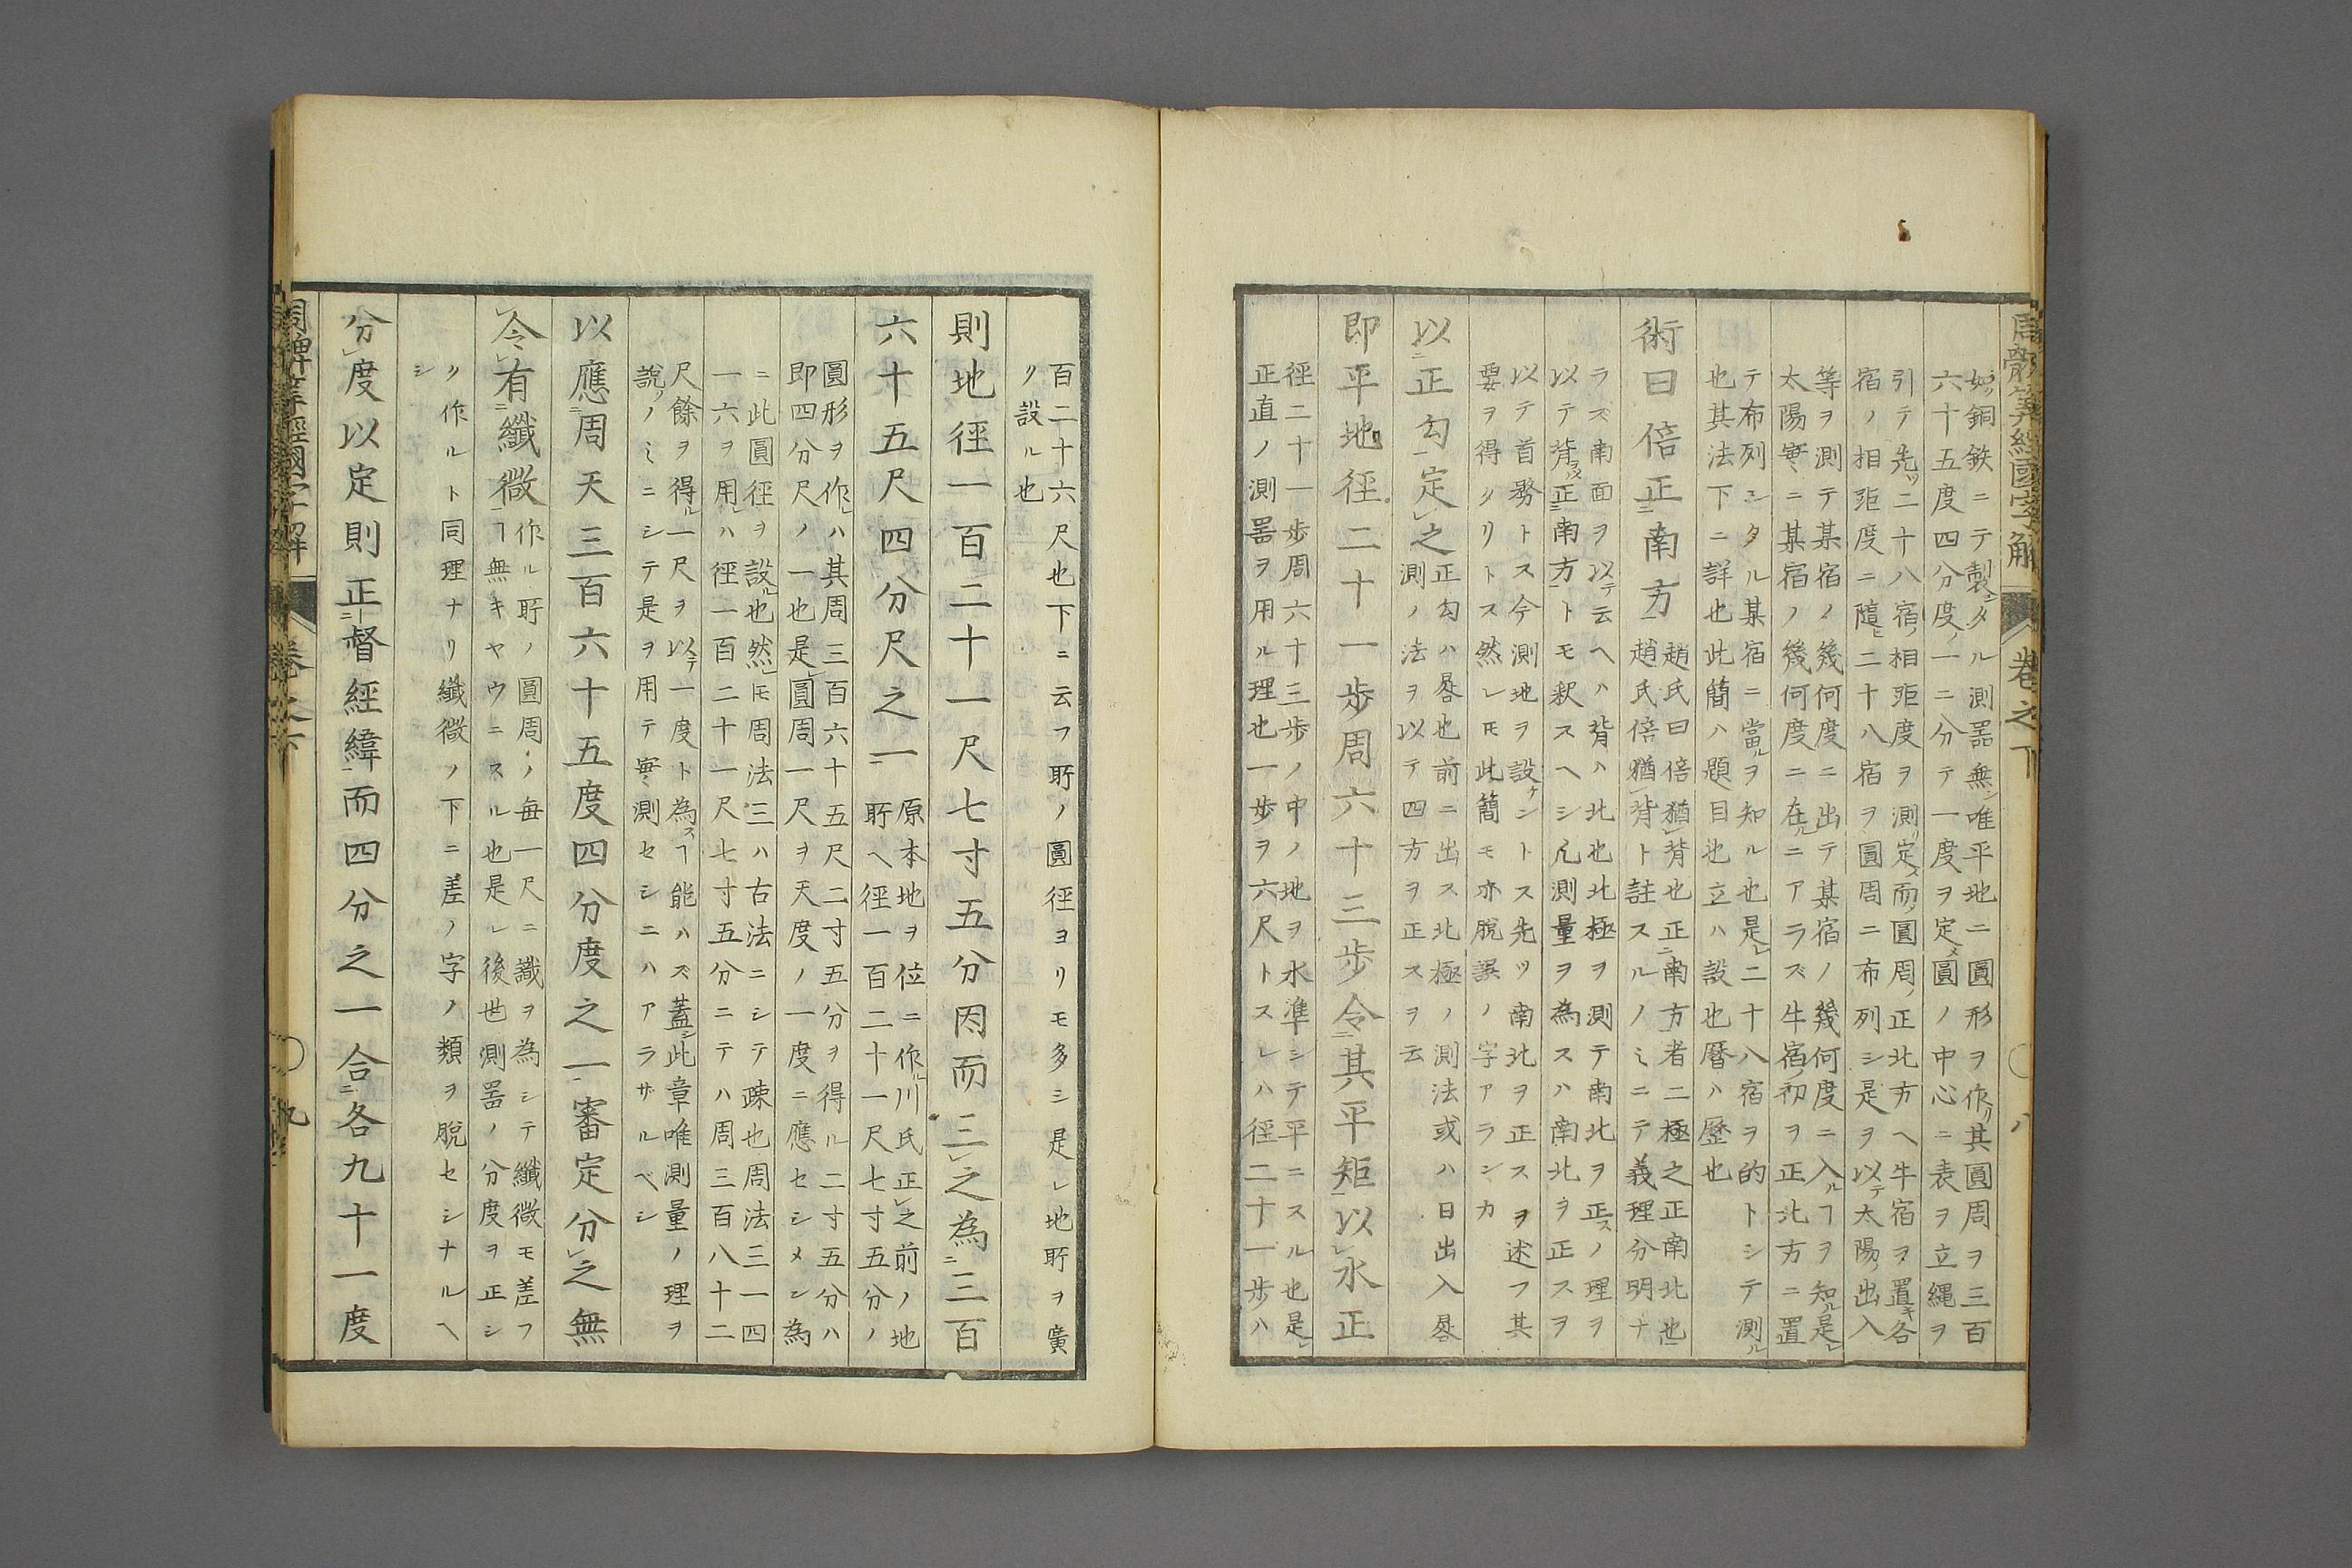 周髀算經國字解
卷之下
八
如ク銅鉄ニテ製シタル測噐無シ唯平地ニ圓形ヲ作リ其圓周ヲ三百
六十五度四分度ノ一ニ分テ一度ヲ定メ圓ノ中心ニ表ヲ立縄ヲ
引テ先ツ二十八宿ノ相距度ヲ測リ定メ而ノ圓周ノ正北方ヘ牛宿ヲ置キ各
宿ノ相距度ニ隨ヒ二十八宿ヲ圓周ニ布列シ是ヲ以テ太陽ノ出入
等ヲ測テ某宿ノ幾何度ニ出テ某宿ノ幾何度ニ入ルヿヲ知ル是レ
太陽實ニ某宿ノ幾何度ニ在ルニアラズ牛宿ノ初ヲ正北方ニ置
テ布列シタル某宿ニ當ルヲ知ル也是レ二十八宿ヲ的トシテ測ル
也其法下ニ詳也此簡ハ題目也立ハ設也曆ハ歷也
術曰倍正南方
趙氏曰倍猶背也正南方者二極之正南北也
趙氏倍猶背ト註スルノミニテ義理分明ナ
ラズ南面ヲ以テ云ヘハ背ハ北也北極ヲ測テ南北ヲ正スノ理ヲ
以テ背正南方トモ釈スヘシ凡測量ヲ為スハ南北ヲ正スヲ
以テ首務トス今測地ヲ設ケントス先ツ南北ヲ正スヲ述フ其
要ヲ得タリトス然レモ此簡モ亦脫誤ノ字アランカ
以正勾定之
正勾ハ晷也前ニ出ス北極ノ測法或ハ日出入晷
測ノ法ヲ以テ四方ヲ正スヲ云
即平地徑二十一歩周六十三歩令其平矩以水正
徑二十一歩周六十三歩ノ中ノ地ヲ水準シテ平ニスル也是レ
正直ノ測噐ヲ用ル理也一歩ヲ六尺トスレハ徑二十一歩ハ
百二十六尺也下ニ云フ所ノ圓徑ヨリモ多シ是レ地所ヲ廣
リ設ル也
則地徑一百二十一尺七寸五分因而三之為三百
六十五尺四分尺之一
原本地ヲ位ニ作ル川氏正之前ノ地
所ヘ徑一百二十一尺七寸五分ノ
圓形ヲ作レハ其周三百六十五尺二寸五分ヲ得ル二寸五分ハ
即四分尺ノ一也是レ圓周一尺ヲ天度ノ一度ニ應セシメン為
ニ此圓徑ヲ設ル也然レモ周法三ハ古法ニシテ疎也周法三一四
一六ヲ用レハ徑一百二十一尺七寸五分ニテハ周三百八十二
尺餘ヲ得ル一尺ヲ以テ一度ト為スヿ能ハズ蓋シ此章唯測量ノ理ヲ
說ノミニシテ是ヲ用テ實ニ測セシニハアラザルベシ
以應周天三百六十五度四分度之一審定分之無
令有纖微
作ル所ノ圓周ノ每一尺ニ識ヲ為シテ纖微モ差フ
ヿ無キヤウニスル也是レ後世測噐ノ分度ヲ正シ
ク作ルト同理ナリ纖微ノ下ニ差ノ字ノ類ヲ脫セシナルヘ
シ
分度以定則正督經緯而四分之一合各九十一度
周髀算經國字解
卷之下
九